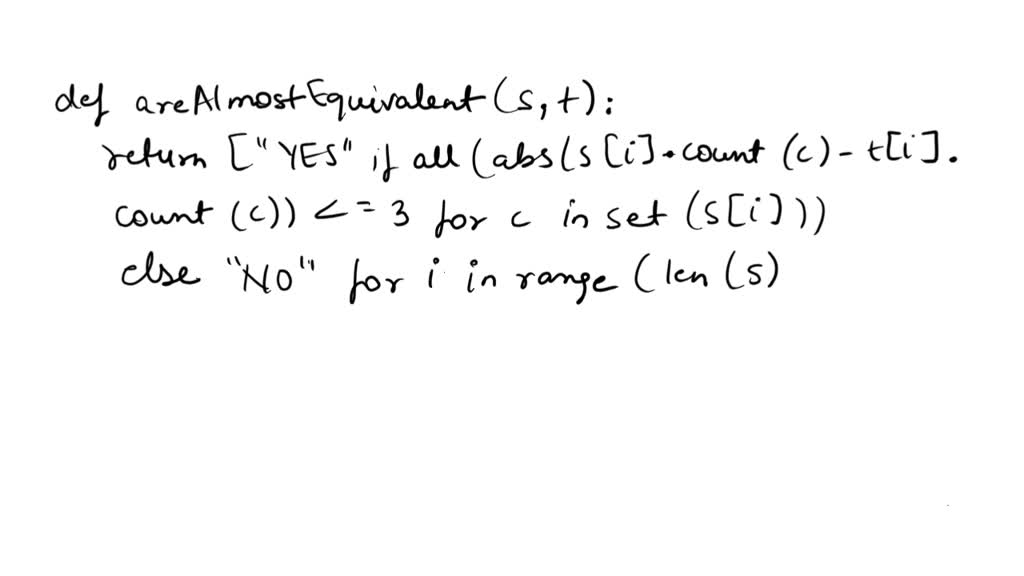 def areAlmostEquivalent(s,t):
return ["YES" if all (abs(s[i].count (c) - t[i].
count (c)) <= 3 for c in set (s[i]))
else "NO" for i in range (len (s)